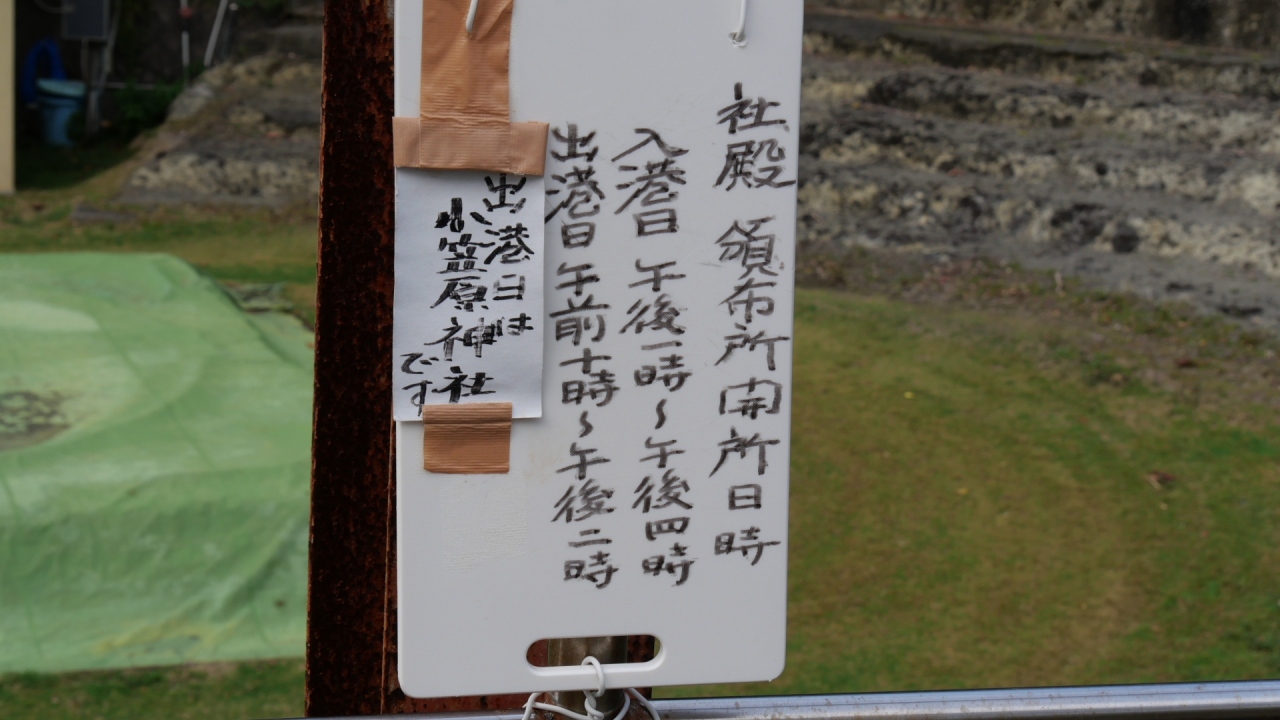 社殿 頒布所開所日時
入港日 午後一時～午後四時
出港日 午前十時～午後二時
出港日は
小笠原神社
です